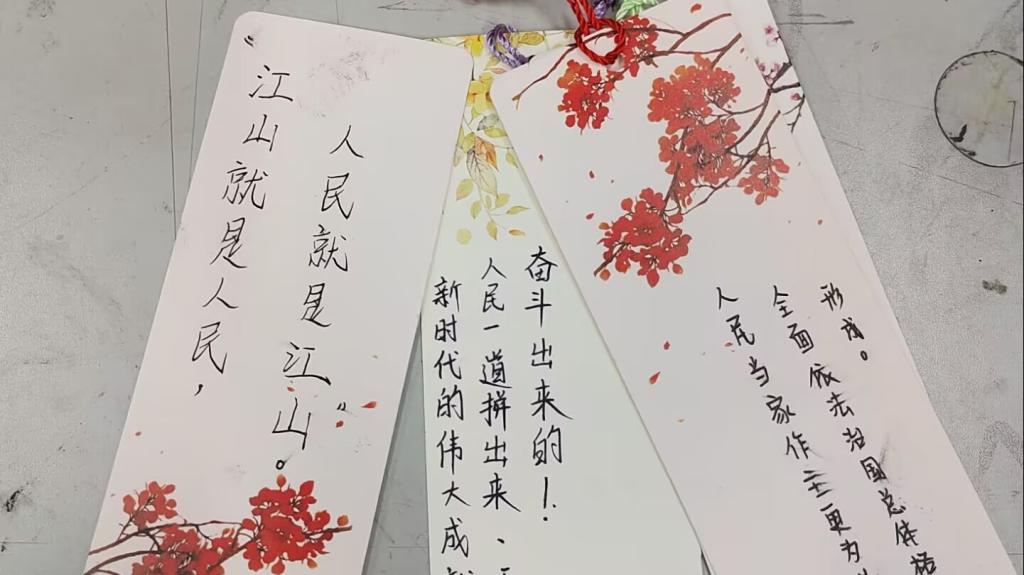 “江山就是人民,
人民就是江山”。
新时代的伟大成
人民一道拼出来、
奋斗出来的!
人民当家作主更为
全面依法治国总体格
形成。